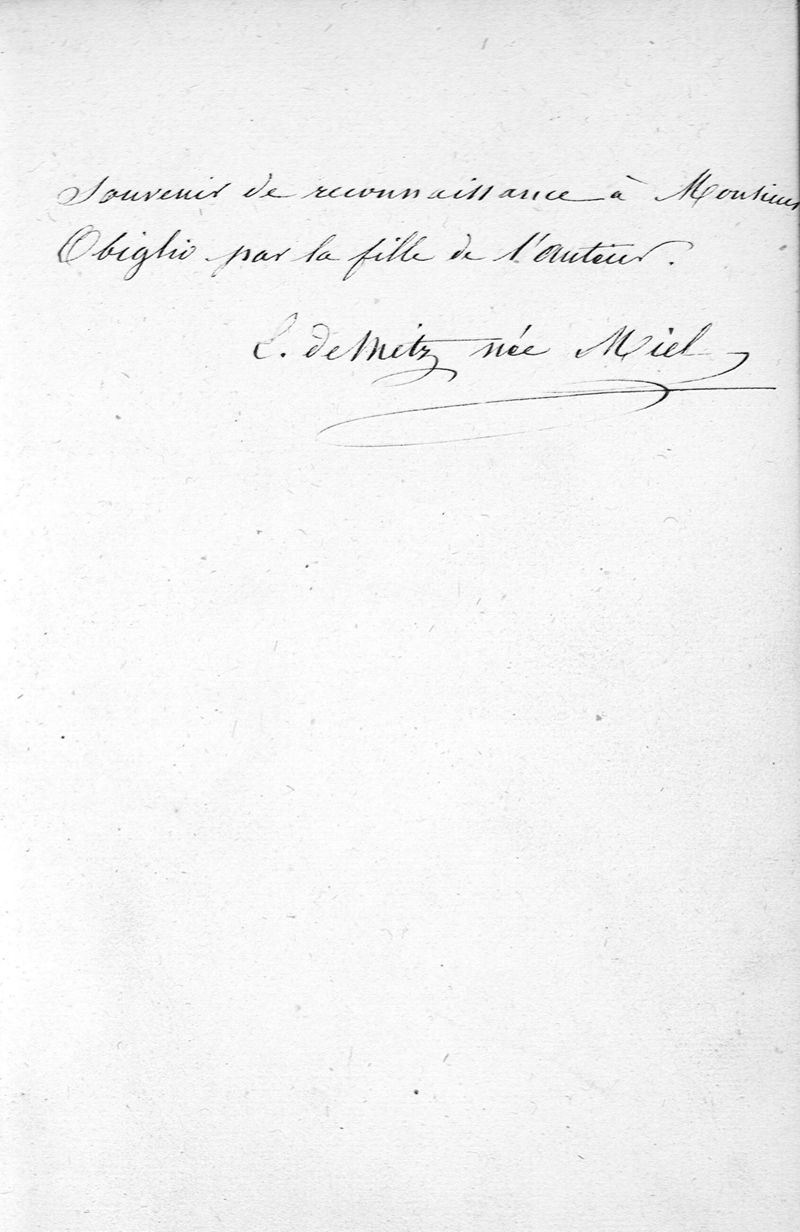 Souvenir de reconnaissance à Monsieur
Obiglio par la fille de l'auteur.
L. de Metz née Miel